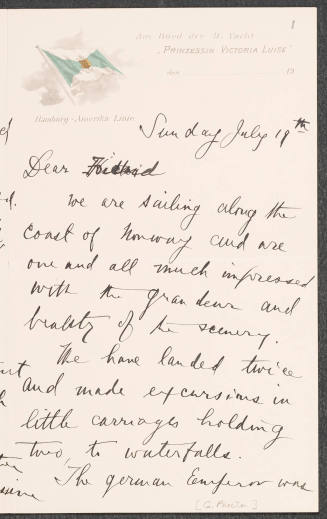 1
Am Bord der D. Yacht
"PRINZESSIN VICTORIA LUISE"
den 19
Hamburg-Amerika Linie
Sunday July 19th
Dear
We are sailing along the
coast of Norway and are
one and all much impressed
with the grandeur and
beauty of the scenery.
We have landed twice
and made excursions in
little carriages holding
two, to waterfalls.
The German Emperor was